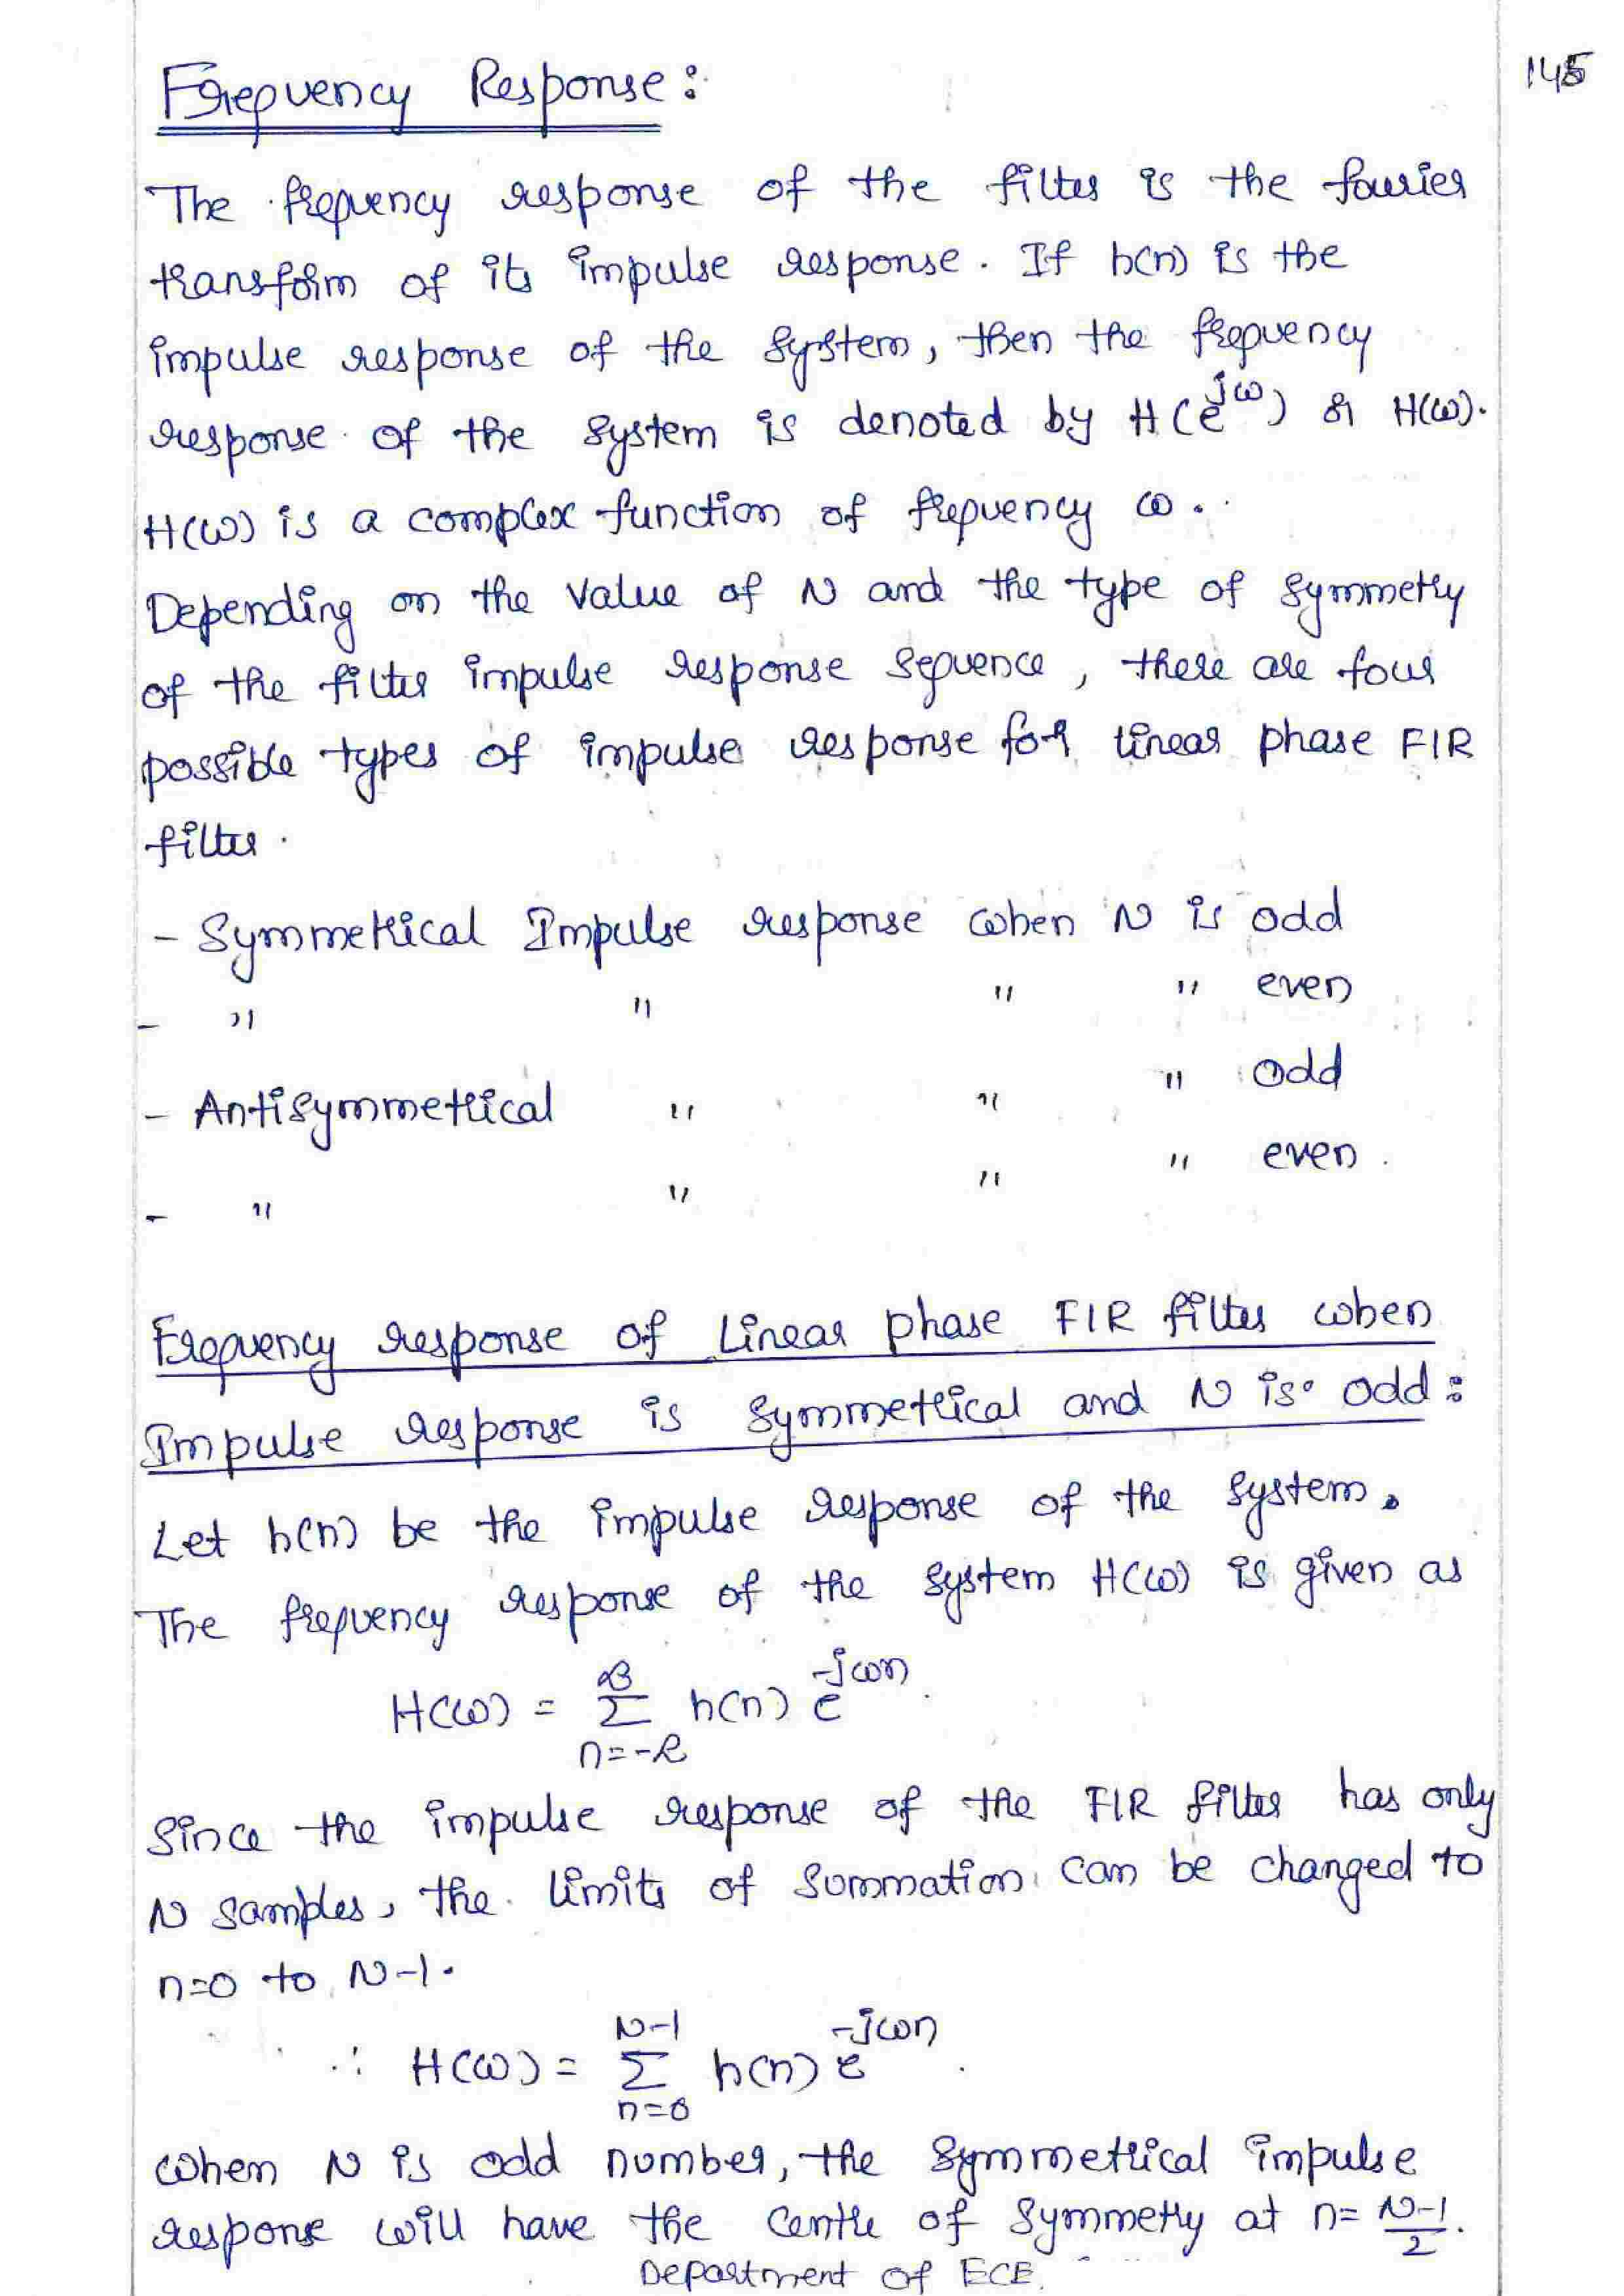 145
Frequency Response:
The frequency response of the filter is the fourier
transform of its impulse response. If h(n) is the
impulse response of the system, then the frequency
response of the system is denoted by H(e^jω) or H(ω).
H(ω) is a complex function of frequency ω.
Depending on the value of N and the type of symmetry
of the filter impulse response sequence, there are four
possible types of impulse response for linear phase FIR
filter.
- Symmetrical Impulse response when N is odd
- " " " " even
- Antisymmetrical " " " odd
- " " " " even.
Frequency response of Linear phase FIR filter when
Impulse response is symmetrical and N is odd:
Let h(n) be the impulse response of the system.
The frequency response of the system H(ω) is given as
H(ω) = ∞ Σ n=-∞ h(n) e^-jωn.
Since the impulse response of the FIR filter has only
N samples, the limits of summation can be changed to
n=0 to N-1.
∴ H(ω) = N-1 Σ n=0 h(n) e^-jωn.
when N is odd number, the symmetrical impulse
response will have the centre of symmetry at n= N-1/2.
Department of ECE.